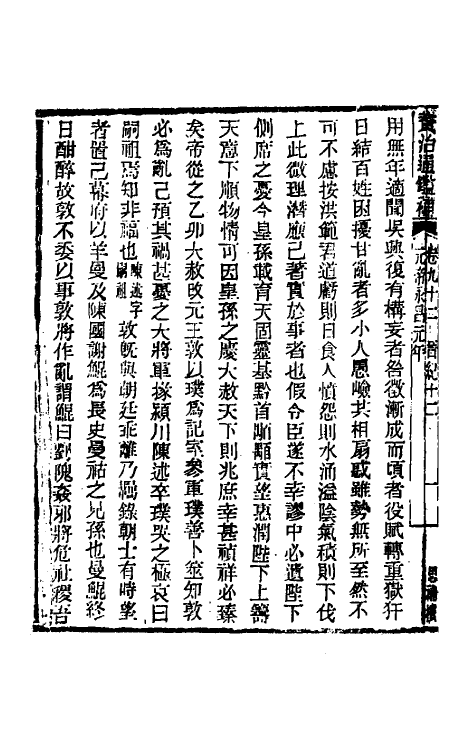 資治通鑑補 卷九十二 晉紀十二 元帝永昌元年
用無年適聞吳興復有構妄者咎徵漸成而頃者役賦轉重獄犴
日結百姓困擾甘亂者多小人愚嶮共相扇惑雖勢無所至然不
可不慮按洪範君道虧則日食人憤怨則水涌溢陰氣積則下伐
上此微理潛應已著實於事者也假令臣遂不幸謬中必遺陛下
側席之憂今皇孫載育天固靈基黔首顒顒實望惠潤陛下上籌
天意下順物情可因皇孫之慶大赦天下則兆庶幸甚禎祥必臻
矣帝從之乙卯大赦改元王敦以璞爲記室參軍璞善卜筮知敦
必爲亂己預其禍甚憂之大將軍掾潁川陳述卒璞哭之極哀曰
嗣祖焉知非福也陳述字嗣祖敦旣與朝廷乖離乃羈錄朝士有時望
者置己幕府以羊曼及陳國謝鯤爲長史曼祜之兄孫也曼鯤終
日酣醉故敦不委以事敦將作亂謂鯤曰劉隗姦邪將危社稷吾
思補樓